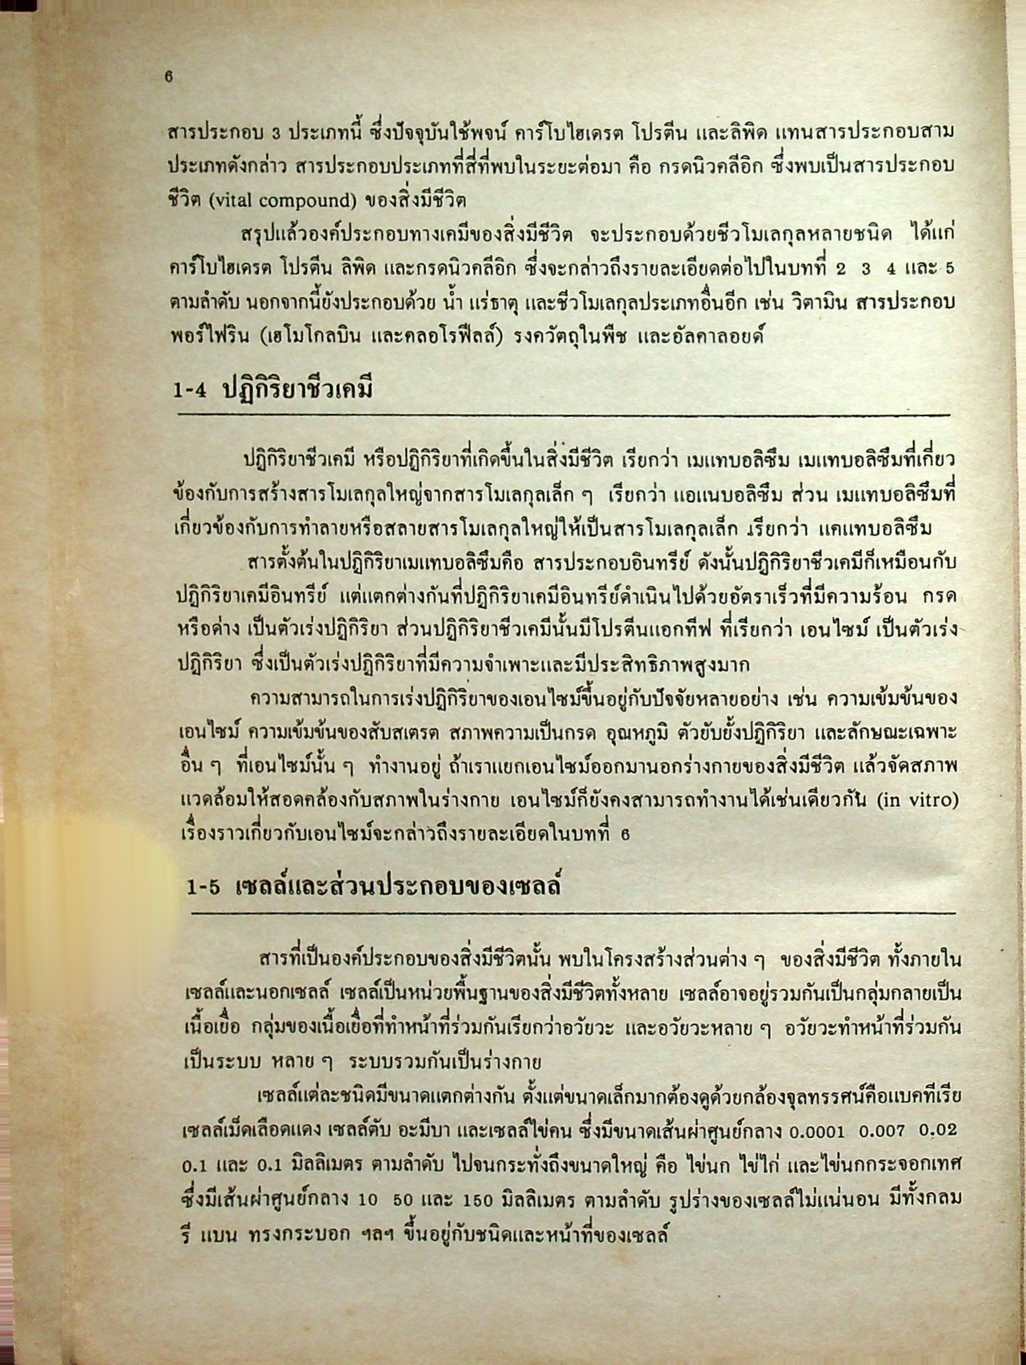 6
สารประกอบ 3 ประเภทนี้ ซึ่งปัจจุบันใช้พจน์ คาร์โบไฮเดรต โปรตีน และลิพิด แทนสารประกอบสาม
ประเภทดังกล่าว สารประกอบประเภทที่สี่ที่พบในระยะต่อมา คือ กรดนิวคลีอิก ซึ่งพบเป็นสารประกอบ
ชีวิต (vital compound) ของสิ่งมีชีวิต
สรุปแล้วองค์ประกอบทางเคมีของสิ่งมีชีวิต จะประกอบด้วยชีวโมเลกุลหลายชนิด ได้แก่
คาร์โบไฮเดรต โปรตีน ลิพิด และกรดนิวคลีอิก ซึ่งจะกล่าวถึงรายละเอียดต่อไปในบทที่ 2 3 4 และ 5
ตามลำดับ นอกจากนี้ยังประกอบด้วย น้ำ แร่ธาตุ และชีวโมเลกุลประเภทอื่นอีก เช่น วิตามิน สารประกอบ
พอร์ไฟริน (เฮโมโกลบิน และคลอโรฟีลล์) รงควัตถุในพืช และอัลคาลอยด์
1-4 ปฏิกิริยาชีวเคมี
ปฏิกิริยาชีวเคมี หรือปฏิกิริยาที่เกิดขึ้นในสิ่งมีชีวิต เรียกว่า เมแทบอลิซึม เมแทบอลิซึมที่เกี่ยว
ข้องกับการสร้างสารโมเลกุลใหญ่จากสารโมเลกุลเล็ก ๆ เรียกว่า แอแนบอลิซึม ส่วน เมแทบอลิซึมที่
เกี่ยวข้องกับการทำลายหรือสลายสารโมเลกุลใหญ่ให้เป็นสารโมเลกุลเล็ก เรียกว่า แคแทบอลิซึม
สารตั้งต้นในปฏิกิริยาเมแทบอลิซึมคือ สารประกอบอินทรีย์ ดังนั้นปฏิกิริยาชีวเคมีก็เหมือนกับ
ปฏิกิริยาเคมีอินทรีย์ แต่แตกต่างกันที่ปฏิกิริยาเคมีอินทรีย์ดำเนินไปด้วยอัตราเร็วที่มีความร้อน กรด
หรือด่าง เป็นตัวเร่งปฏิกิริยา ส่วนปฏิกิริยาชีวเคมีนั้นมีโปรตีนแอกทีฟ ที่เรียกว่า เอนไซม์ เป็นตัวเร่ง
ปฏิกิริยา ซึ่งเป็นตัวเร่งปฏิกิริยาที่มีความจำเพาะและมีประสิทธิภาพสูงมาก
ความสามารถในการเร่งปฏิกิริยาของเอนไซม์ขึ้นอยู่กับปัจจัยหลายอย่าง เช่น ความเข้มข้นของ
เอนไซม์ ความเข้มข้นของสับสเตรต สภาพความเป็นกรด อุณหภูมิ ตัวยับยั้งปฏิกิริยา และลักษณะเฉพาะ
อื่น ๆ ที่เอนไซม์นั้น ๆ ทำงานอยู่ ถ้าเราแยกเอนไซม์ออกมานอกร่างกายของสิ่งมีชีวิต แล้วจัดสภาพ
แวดล้อมให้สอดคล้องกับสภาพในร่างกาย เอนไซม์ก็ยังคงสามารถทำงานได้เช่นเดียวกัน (in vitro)
เรื่องราวเกี่ยวกับเอนไซม์จะกล่าวถึงรายละเอียดในบทที่ 6
1-5 เซลล์และส่วนประกอบของเซลล์
สารที่เป็นองค์ประกอบของสิ่งมีชีวิตนั้น พบในโครงสร้างส่วนต่าง ๆ ของสิ่งมีชีวิต ทั้งภายใน
เซลล์และนอกเซลล์ เซลล์เป็นหน่วยพื้นฐานของสิ่งมีชีวิตทั้งหลาย เซลล์อาจอยู่รวมกันเป็นกลุ่มกลายเป็น
เนื้อเยื่อ กลุ่มของเนื้อเยื่อที่ทำหน้าที่ร่วมกันเรียกว่าอวัยวะ และอวัยวะหลาย ๆ อวัยวะทำหน้าที่ร่วมกัน
เป็นระบบ หลาย ๆ ระบบรวมกันเป็นร่างกาย
เซลล์แต่ละชนิดมีขนาดแตกต่างกัน ตั้งแต่ขนาดเล็กมากต้องดูด้วยกล้องจุลทรรศน์คือแบคทีเรีย
เซลล์เม็ดเลือดแดง เซลล์ตับ อะมีบา และเซลล์ไข่คน ซึ่งมีขนาดเส้นผ่าศูนย์กลาง 0.0001 0.007 0.02
0.1 และ 0.1 มิลลิเมตร ตามลำดับ ไปจนกระทั่งถึงขนาดใหญ่ คือ ไข่นก ไข่ไก่ และไข่นกกระจอกเทศ
ซึ่งมีเส้นผ่าศูนย์กลาง 10 50 และ 150 มิลลิเมตร ตามลำดับ รูปร่างของเซลล์ไม่แน่นอน มีทั้งกลม
รี แบน ทรงกระบอก ฯลฯ ขึ้นอยู่กับชนิดและหน้าที่ของเซลล์